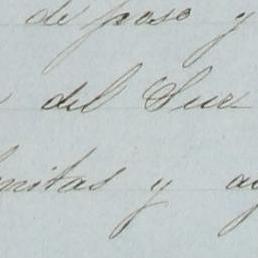 de paso y
del Sur
nitas y ag